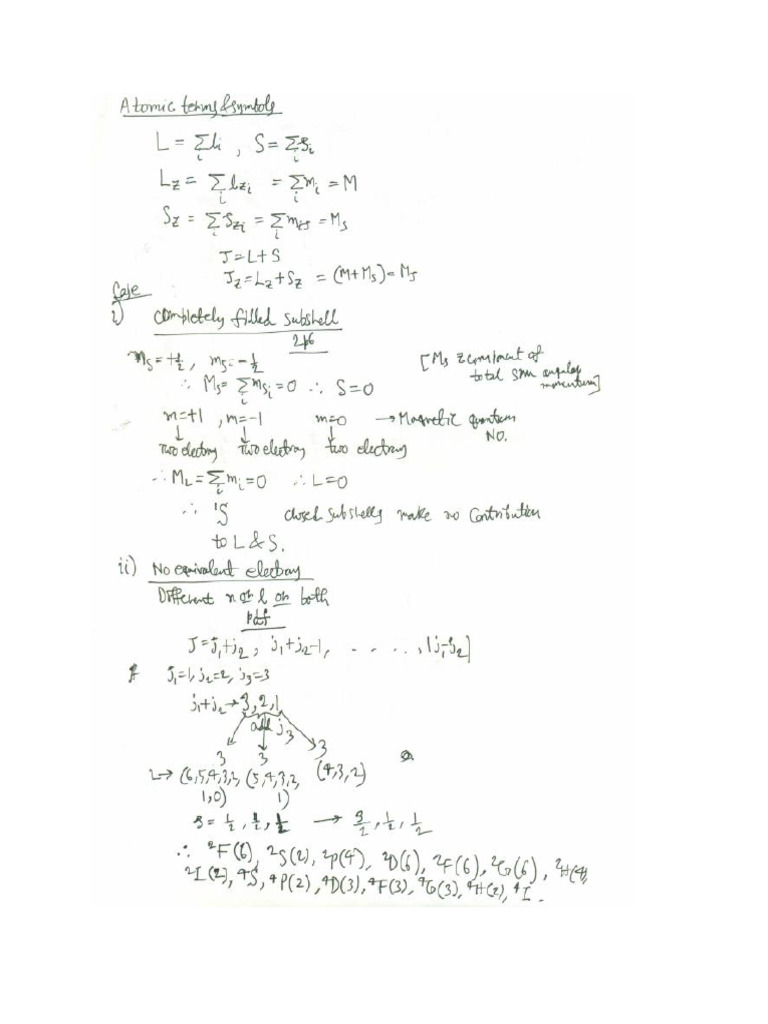 Atomic terms & symbols
L = Σᵢ lᵢ , S = Σᵢ sᵢ
L_z = Σᵢ l_zᵢ = Σᵢ mᵢ = M
S_z = Σᵢ S_zᵢ = Σᵢ m_s = M_s
J = L + S
J_z = L_z + S_z = (M + M_s) = M_J
Case
i) Completely filled subshell
2p6
m_s = +½ , m_s = -½
[M_s z component of total spin angular momentum]
∴ M_s = Σᵢ m_sᵢ = 0 ∴ S = 0
m = +1 , m = -1 m = 0 → Magnetic quantum NO.
↓ ↓ ↓
Two electrons Two electrons two electrons
∴ M_L = Σᵢ mᵢ = 0 ∴ L = 0
∴ ¹S closed subshells make no contribution
to L & S.
ii) No equivalent electrons
Different n or l or both
pdf
J = j₁+j₂ , j₁+j₂-1, . . . . , |j₁-j₂|
j₁=1, j₂=2, j₃=3
j₁+j₂ → 3,2,1
add j₃
3 3 3
L → (6,5,4,3,2, (5,4,3,2, (4,3,2)
1,0) 1)
s = ½, ½, ½ → 3/2, ½, ½
∴ ²F(6), ²S(2), ²P(4), ²D(6), ²F(6), ²G(6), ²H(4)
²I(2), ⁴S, ⁴P(2), ⁴D(3), ⁴F(3), ⁴G(3), ⁴H(2), ⁴I.